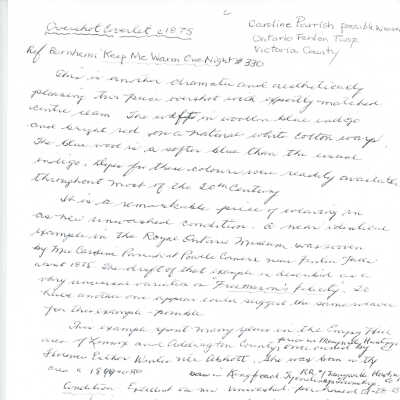 Overshot Coverlet c1875
Caroline Parrish possible Weaver
Ontario Fenlon Twsp
Victoria County
Ref Burnham: Keep Me Warm One Night #330
This is another dramatic and aesthetically
pleasing two piece overshot with expertly matched
centre seam. The weft is in woollen blue indigo
and bright red on a natural white cotton warp.
The blue wool is a softer blue than the usual
indigo. Dyes for these colours were readily available
throughout most of the 20th Century
It is a remarkable piece of weaving in
as new unwashed condition. A near identical
example in the Royal Ontario Museum was woven
by Mrs Caroline Parrish at Powle's Corners near Fenlon Falls
about 1875. The draft of that example is described as a
very unusual variation of "Freemason's Felicity". To
have another one appear could suggest the same weaver
for this example - possible
This example spent many years in the
area of Lennox and Addington County,
Florence Parker Winter née Abbott. She was born in the
area c 1894
Condition: Excellent as new Unwashed